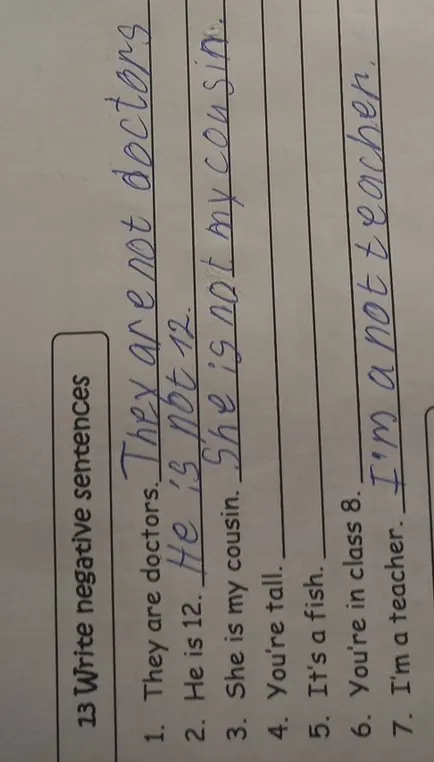 13 Write negative sentences
1. They are doctors. They are not doctors
2. He is 12. He is not 12.
3. She is my cousin. She is not my cousin.
4. You're tall.
5. It's a fish.
6. You're in class 8.
7. I'm a teacher. I'm a not teacher.